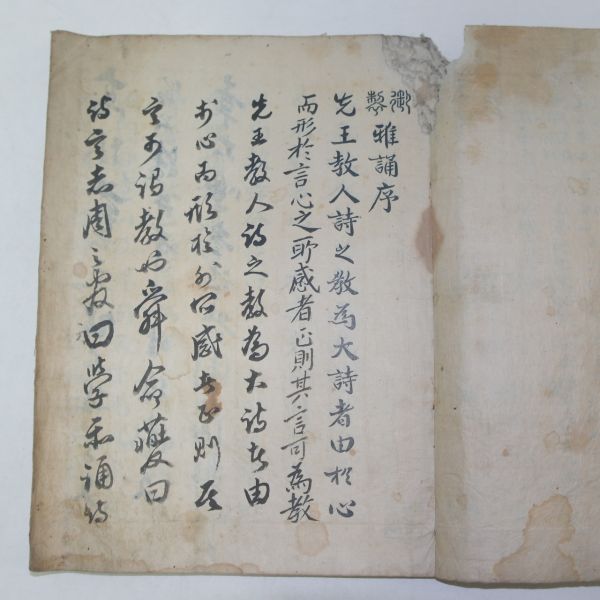 御製雅誦序
先王教人詩之教為大詩者由於心
而形於言心之所感者正則其言可為教
先王教人詩之教為大詩者由
於心而形於感者正則其
言可謂教也舜命夔曰
詩言志周之曰學樂誦詩